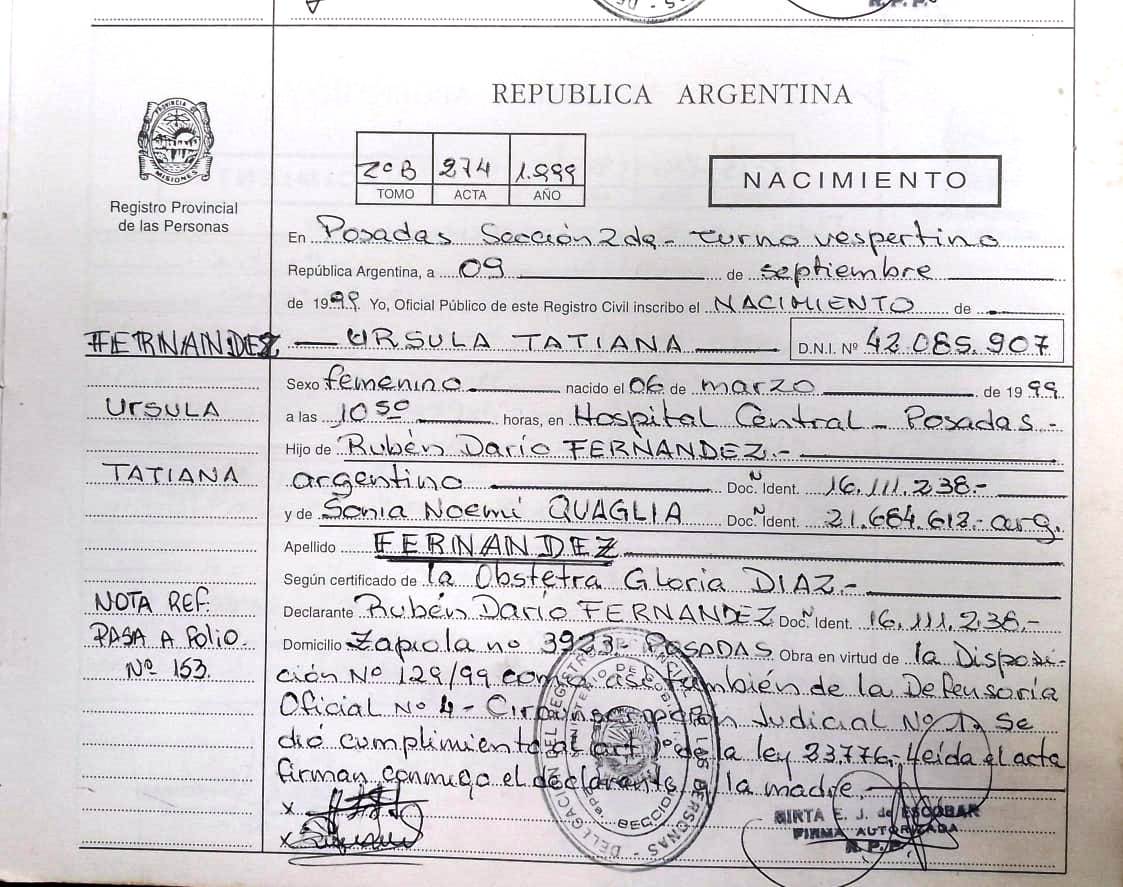 R.P.P.
REPUBLICA ARGENTINA
PROVINCIA DE
MISIONES
Registro Provincial
de las Personas
2º B 274 1.999
TOMO ACTA AÑO
NACIMIENTO
En Posadas Sección 2da - turno vespertino
República Argentina, a 09 de septiembre
de 1999 Yo, Oficial Público de este Registro Civil inscribo el NACIMIENTO de
FERNANDEZ URSULA TATIANA D.N.I. Nº 42.085.907
Sexo femenino nacido el 06 de marzo de 1999
URSULA
a las 10 50 horas, en Hospital Central - Posadas -
Hijo de Rubén Darío FERNANDEZ.-
TATIANA
argentino Doc. Ident. Nº 16.111.238.-
y de Sonia Noemi QUAGLIA Doc. Ident. Nº 21.684.618.- arg.
Apellido FERNANDEZ
Según certificado de la Obstetra Gloria DIAZ.-
NOTA REF.
Declarante Rubén Darío FERNANDEZ Doc. Ident. Nº 16.111.238.-
PASA A FOLIO
Domicilio Zapiola nº 3923- POSADAS Obra en virtud de la Disposi-
Nº 153.
ción Nº 129/99 como así también de la Defensoría
Oficial Nº 4 - Circunscripción Judicial Nº 1, Se
dió cumplimiento al art 1º de la ley 23.776,- Leída el acta
firman conmigo el declarante y la madre.
x
x
MIRTA E. J. de ESCOBAR
FIRMA AUTORIZADA
R.P.P.